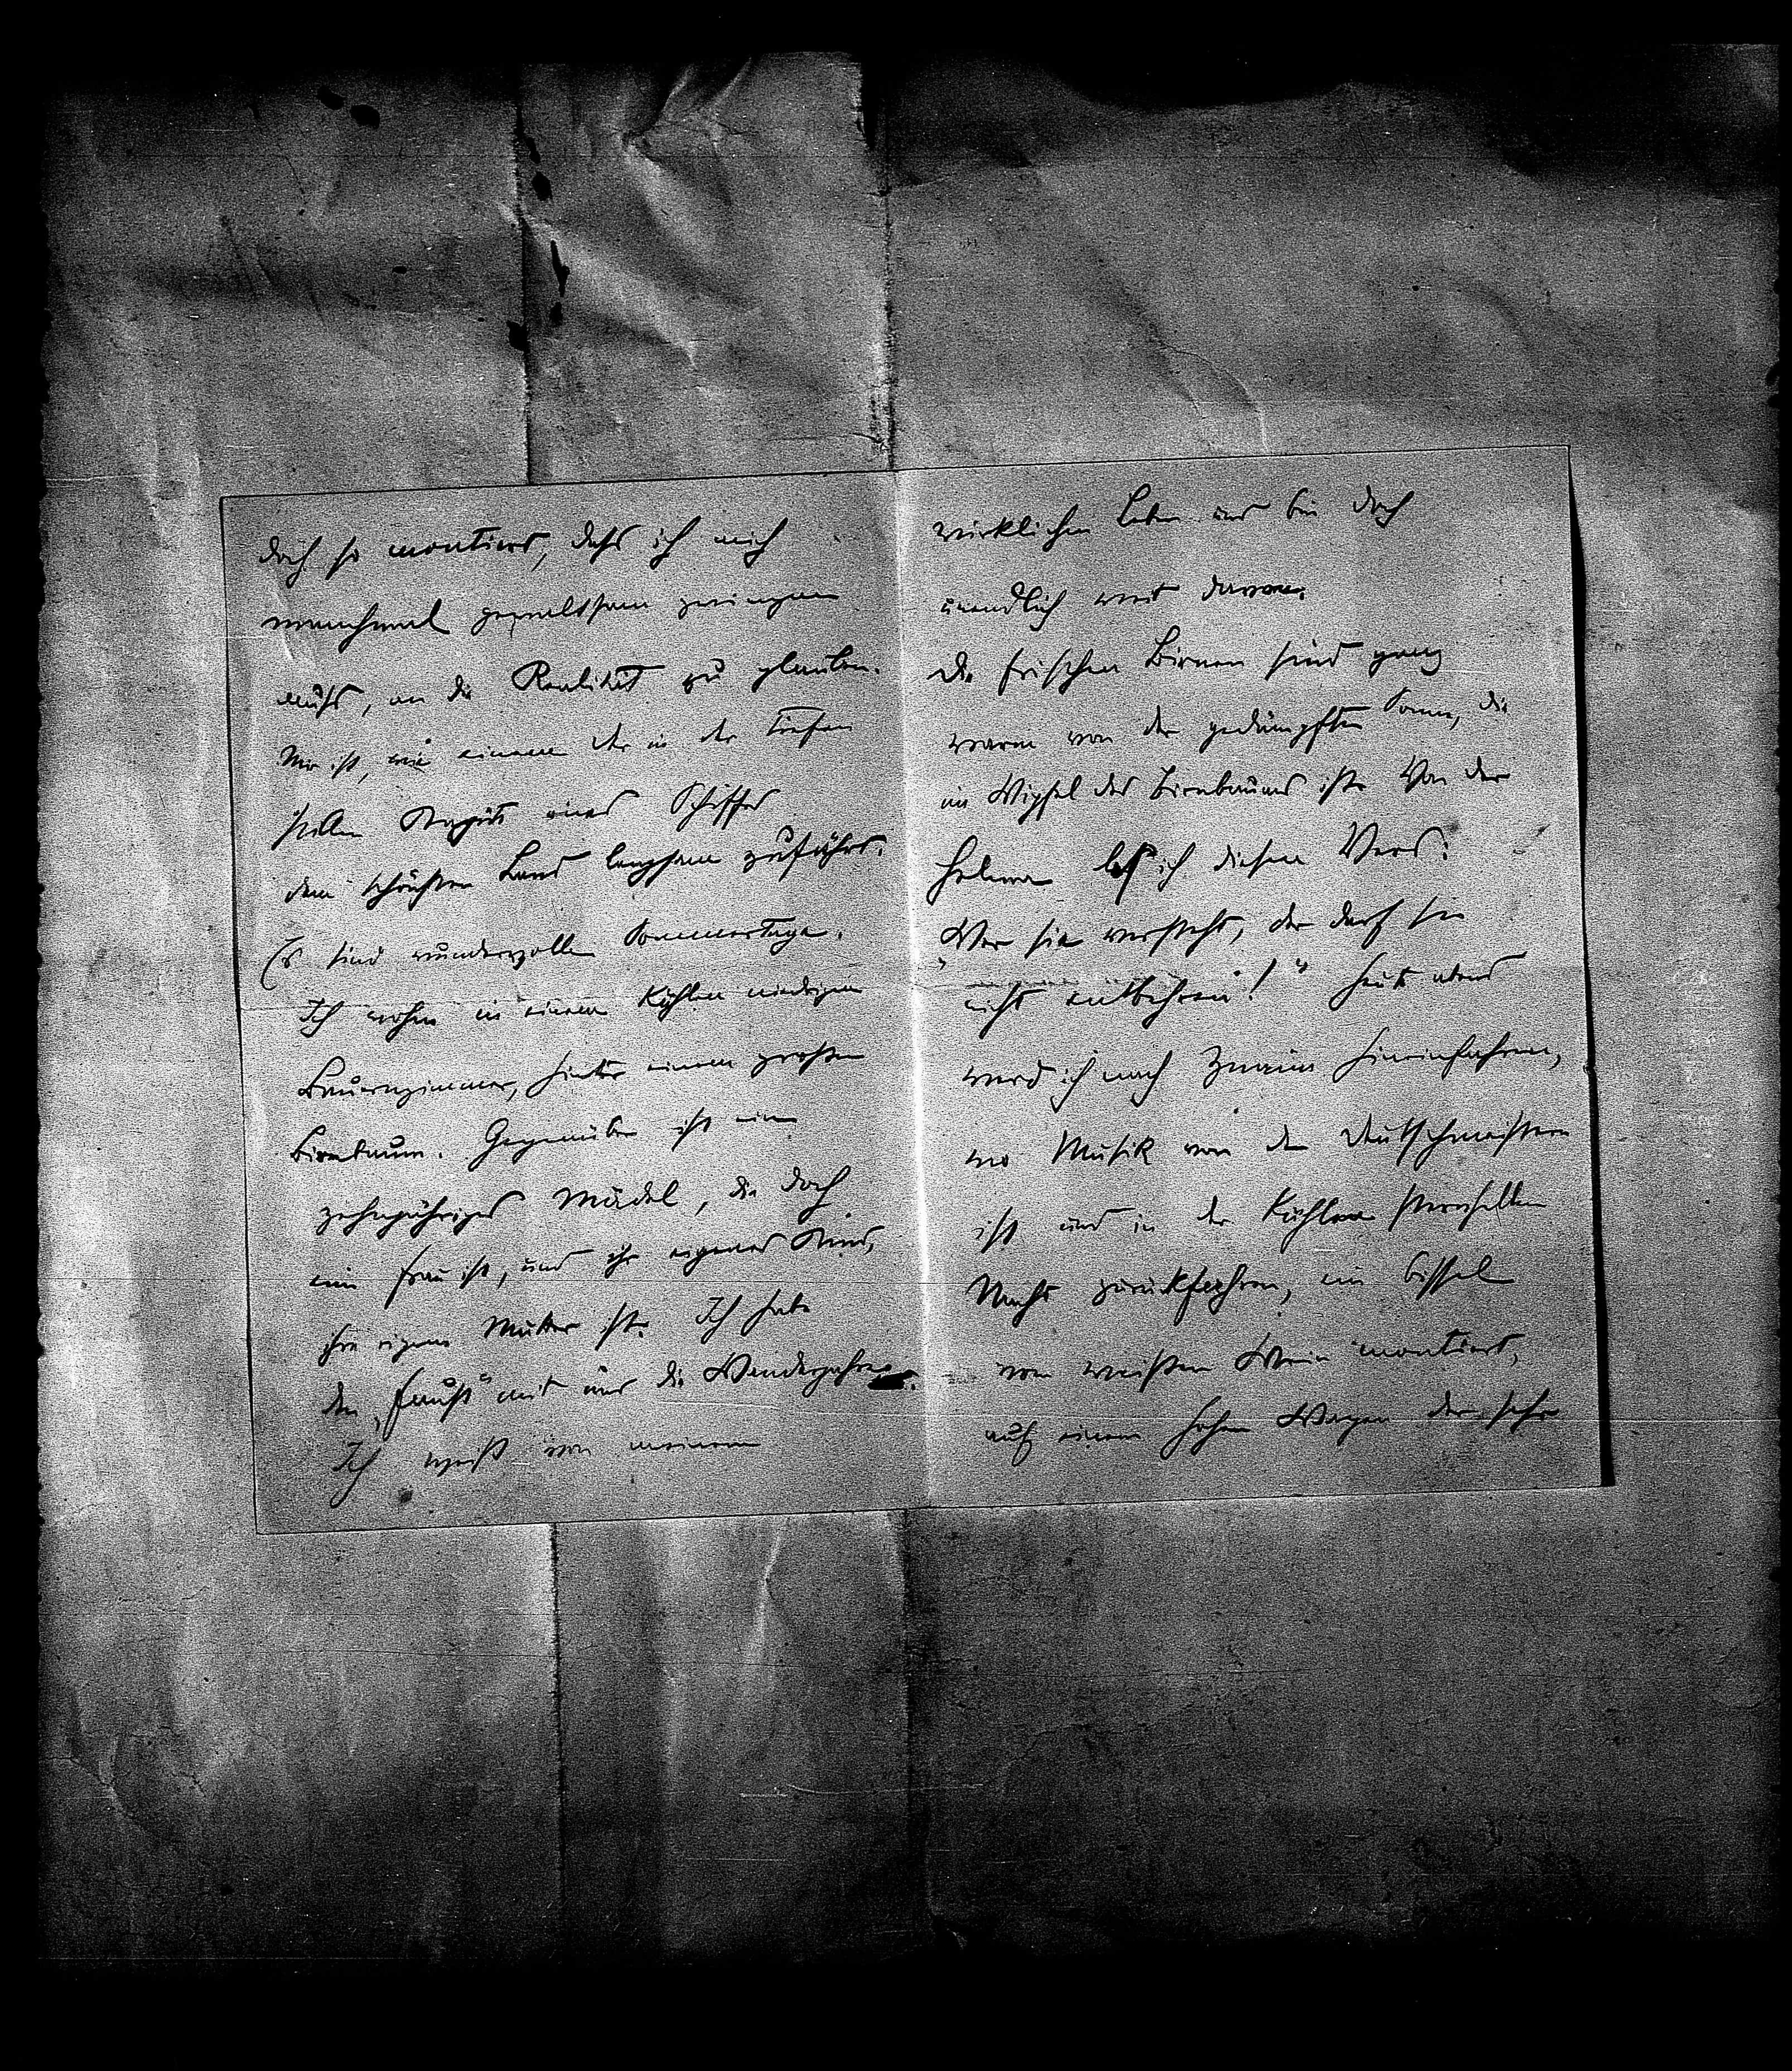 doch so montiert, dass ich mich
manchmal gewaltsam zwingen
muss, an die Realität zu glauben.
Mir ist, wie einem der in der tiefen
stillen Kajüte eines Schiffes
dem schönsten Land langsam zufährt.
Es sind wundervolle Sommertage.
Ich wohne in einem kühlen niedrigen
Bauernzimmer, hinter einem großen
Birnbaum. Gegenüber ist ein
zehnjähriges Mädel, die doch
eine Frau ist, und ihr eigenes Kind,
ihre eigene Mutter ist. Ich habe
den „Faust" mit und die Wanderjahre.
Ich weiß von meinem
wirklichen Leben und bin doch
unendlich weit davon.
Die frischen Birnen sind ganz
warm von der gedämpften Sonne, die
im Wipfel des Birnbaums ist. Von der
Helena las ich diesen Vers:
„Wer sie versteht, der darf sie
nicht entbehren!" Heute abend
werd ich nach Znaim hineinfahren,
wo Musik von den Deutschmeistern
ist und in der kühlen sternhellen
Nacht zurückfahren, ein bissel
vom weißen Wein montiert,
auf einem hohen Wagen der sehr